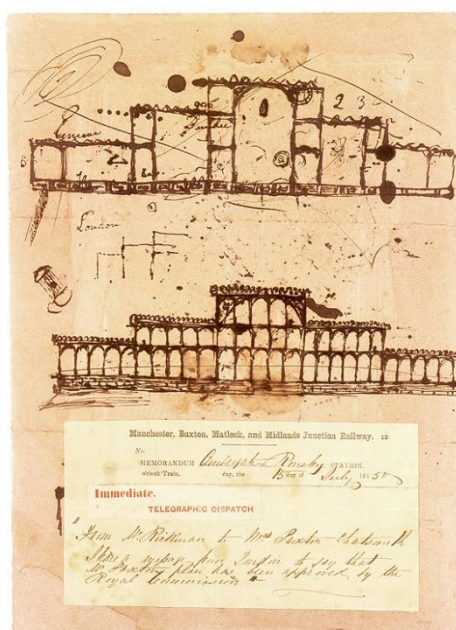 2 3
London
Manchester, Buxton, Matlock, and Midlands Junction Railway. 
No.
MEMORANDUM Rowsley STATION.
o'clock Train. day, the 15 day of July 1850
Immediate.
TELEGRAPHIC DISPATCH
From Mr Rickman to Mrs Paxton Chatsworth
a message from London to say that
Mr Paxtons plan has been approved by the
Royal Commission"